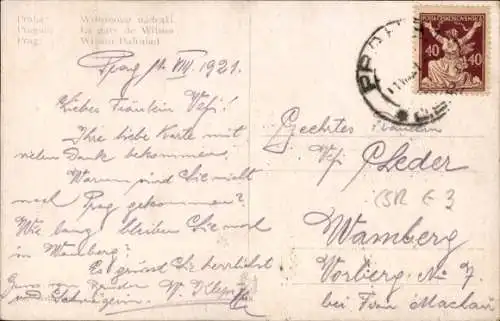 Praha: Wilsonovo nádraží.
Prague: La gare de Wilson
Prag: Wilson-Bahnhof
Prag 11. VIII. 1921.
Liebes Fräulein Vefi!
Ihre liebe Karte mit
vielen Dank bekommen.
Warum sind Sie nicht
nach Prag gekommen?
Wie lang bleiben Sie noch
in Wamberg?
Es grüsst Sie herzlichst
Gruss von Bruder
und Schwägerin.
POŠTA ČESKOSLOVENSKÁ
40 40
Geehrtes Fräulein
Vefi Cleder
ČSR
Wamberg
Vorberg No 7.
bei Frau